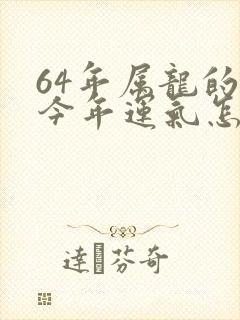 64年属龍的
今年運氣怎
達芬奇